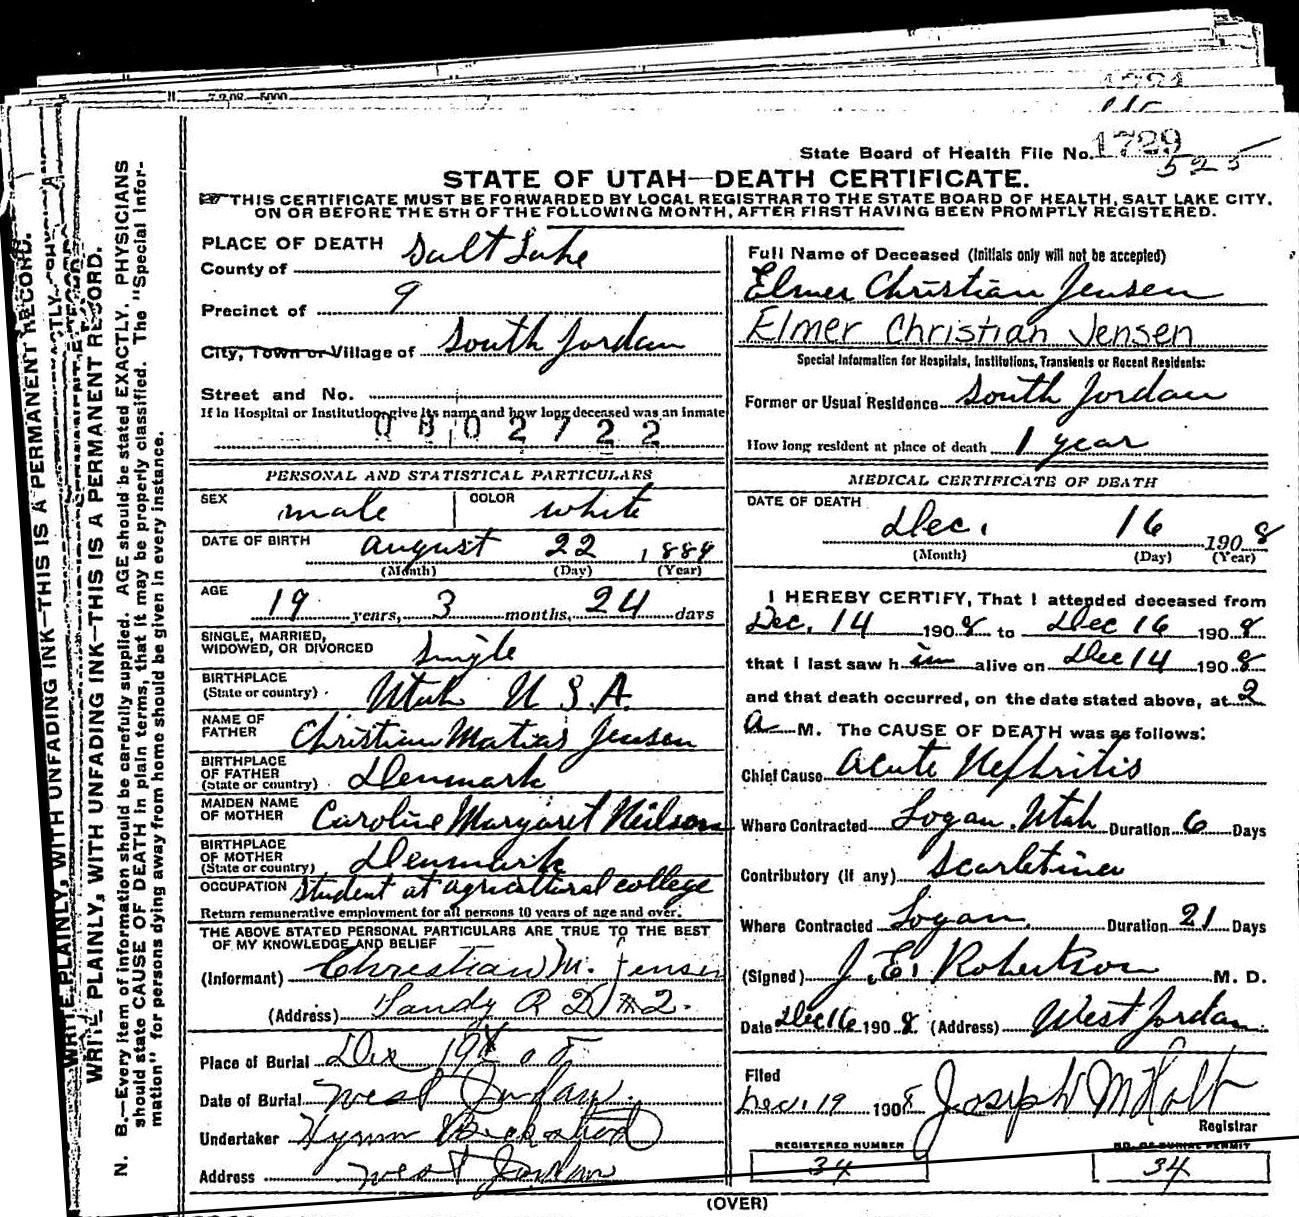 State Board of Health File No. 1729
525
STATE OF UTAH—DEATH CERTIFICATE.
THIS CERTIFICATE MUST BE FORWARDED BY LOCAL REGISTRAR TO THE STATE BOARD OF HEALTH, SALT LAKE CITY,
ON OR BEFORE THE 5TH OF THE FOLLOWING MONTH, AFTER FIRST HAVING BEEN PROMPTLY REGISTERED.
WRITE PLAINLY, WITH UNFADING INK—THIS IS A PERMANENT RECORD.
WRITE PLAINLY, WITH UNFADING INK—THIS IS A PERMANENT RECORD.
N. B.—Every item of information should be carefully supplied. AGE should be stated EXACTLY. PHYSICIANS
should state CAUSE OF DEATH in plain terms, that it may be properly classified. The "Special Infor-
mation" for persons dying away from home should be given in every instance.
PLACE OF DEATH
County of Salt Lake
Precinct of 9
City, Town or Village of South Jordan
Street and No.
If in Hospital or Institution, give its name and how long deceased was an inmate
0802722
PERSONAL AND STATISTICAL PARTICULARS
SEX male COLOR white
DATE OF BIRTH August 22, 1889
(Month) (Day) (Year)
AGE 19 years, 3 months, 24 days
SINGLE, MARRIED,
WIDOWED, OR DIVORCED Single
BIRTHPLACE
(State or country) Utah U S A.
NAME OF
FATHER Christian Matias Jensen
BIRTHPLACE
OF FATHER
(State or country) Denmark
MAIDEN NAME
OF MOTHER Caroline Margaret Neilson
BIRTHPLACE
OF MOTHER
(State or country) Denmark
OCCUPATION Student at agricultural college
Return remunerative employment for all persons 10 years of age and over.
THE ABOVE STATED PERSONAL PARTICULARS ARE TRUE TO THE BEST
OF MY KNOWLEDGE AND BELIEF
(Informant) Christian M. Jensen
(Address) Sandy R D #2.
Place of Burial Dec 19
Date of Burial West Jordan
Undertaker Hyrum Beckstead
Address West Jordan
Full Name of Deceased (Initials only will not be accepted)
Elmer Christian Jensen
Elmer Christian Jensen
Special Information for Hospitals, Institutions, Transients or Recent Residents:
Former or Usual Residence South Jordan
How long resident at place of death 1 year
MEDICAL CERTIFICATE OF DEATH
DATE OF DEATH
Dec. 16 1908
(Month) (Day) (Year)
I HEREBY CERTIFY, That I attended deceased from
Dec. 14 1908 to Dec 16 1908
that I last saw him alive on Dec 14 1908
and that death occurred, on the date stated above, at 2
a M. The CAUSE OF DEATH was as follows:
Chief Cause Acute Nephritis
Where Contracted Logan, Utah Duration 6 Days
Contributory (if any) Scarletina
Where Contracted Logan, Duration 21 Days
(Signed) J. E. Robertson M. D.
Date Dec 16 1908. (Address) West Jordan.
Filed
Dec. 19 1908 Joseph M Holt
Registrar
REGISTERED NUMBER
34
NO. OF BURIAL PERMIT
34
(OVER)